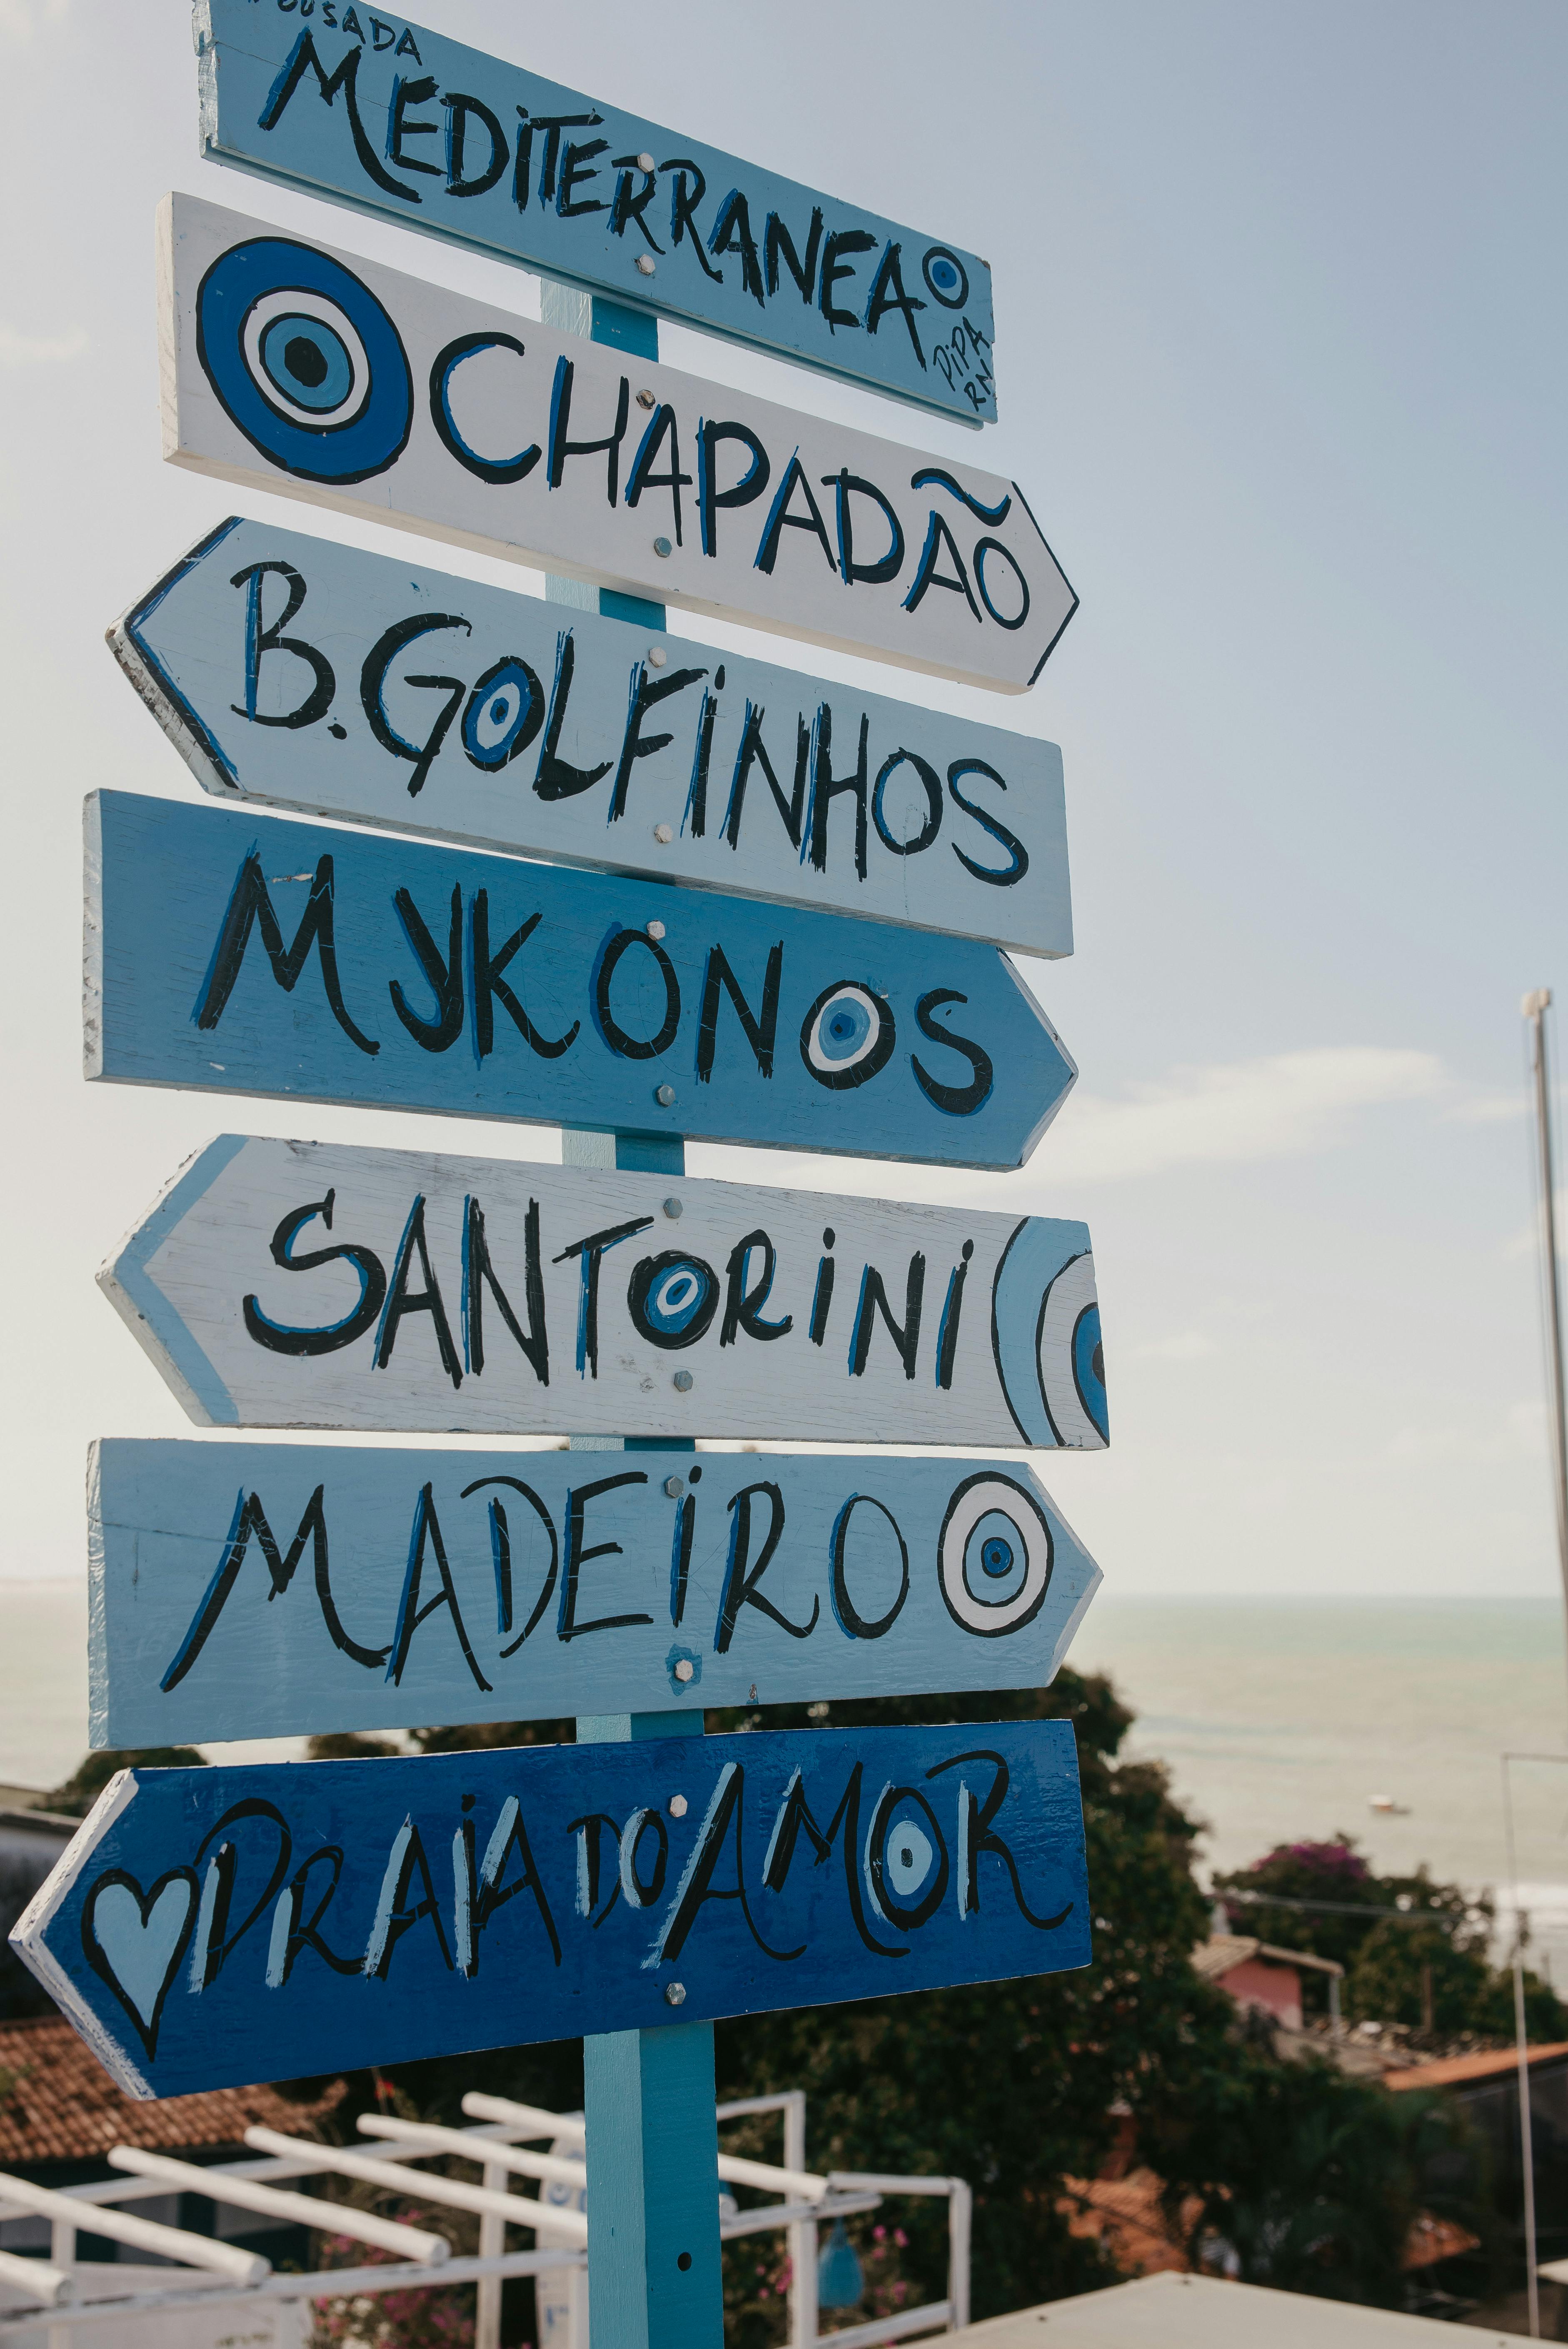 POUSADA
MEDITERRANEA
PIPA
RN
CHAPADÃO
B.GOLFINHOS
MYKONOS
SANTORINI
MADEIRO
PRAIA DO AMOR